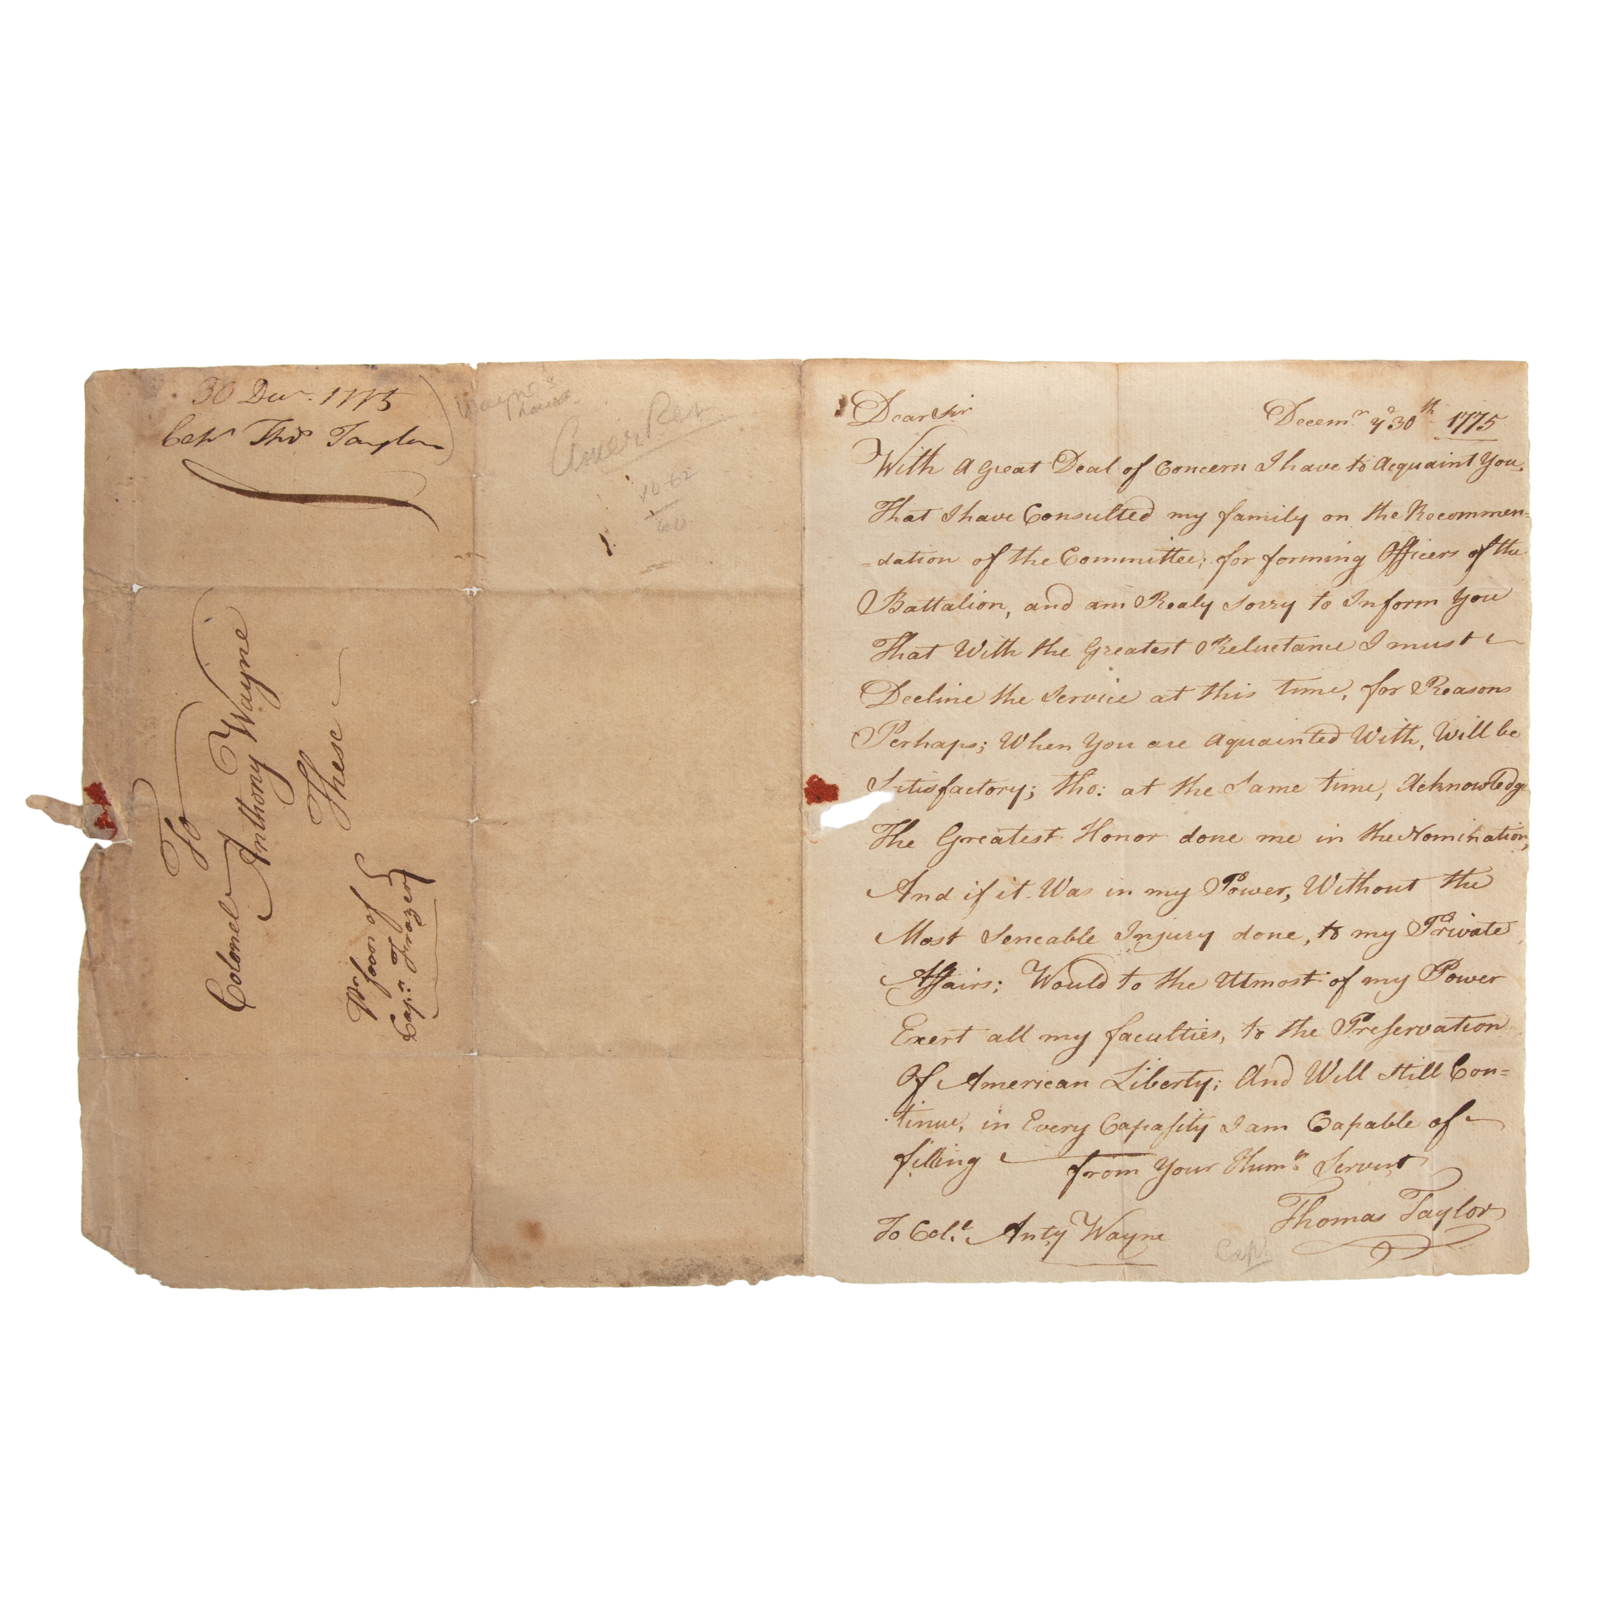 30 Decr. 1775
Capn Thos Taylor
To
Colonel
Anthony Wayne
These
Pr favor of
Capn: Frazer
Amer Rev
Dear Sir
Decemr ye 30th 1775
With a great Deal of Concern I have to Acquaint You,
That I have Consulted my family on the Recommen=
=dation of the Committee; for forming Officers of the
Battalion, and am Realy Sorry to Inform You
That With the Greatest Reluctance I must
Decline the Service at this time, for Reasons
Perhaps; When You are Aquainted With, Will be
Satisfactory; tho: at the Same time, Acknowledge
The Greatest Honor done me in the Nomination,
And if it Was in my Power, Without the
Most Senceable Injury done, to my Private
Affairs; Would to the Utmost of my Power
Exert all my faculties, to the Preservation
Of American Liberty; And Will Still Con=
tinue, in Every Capassity I am Capable of
filling from Your Humle Servent
Thomas Taylor
To Coll. Anty Wayne
Capt